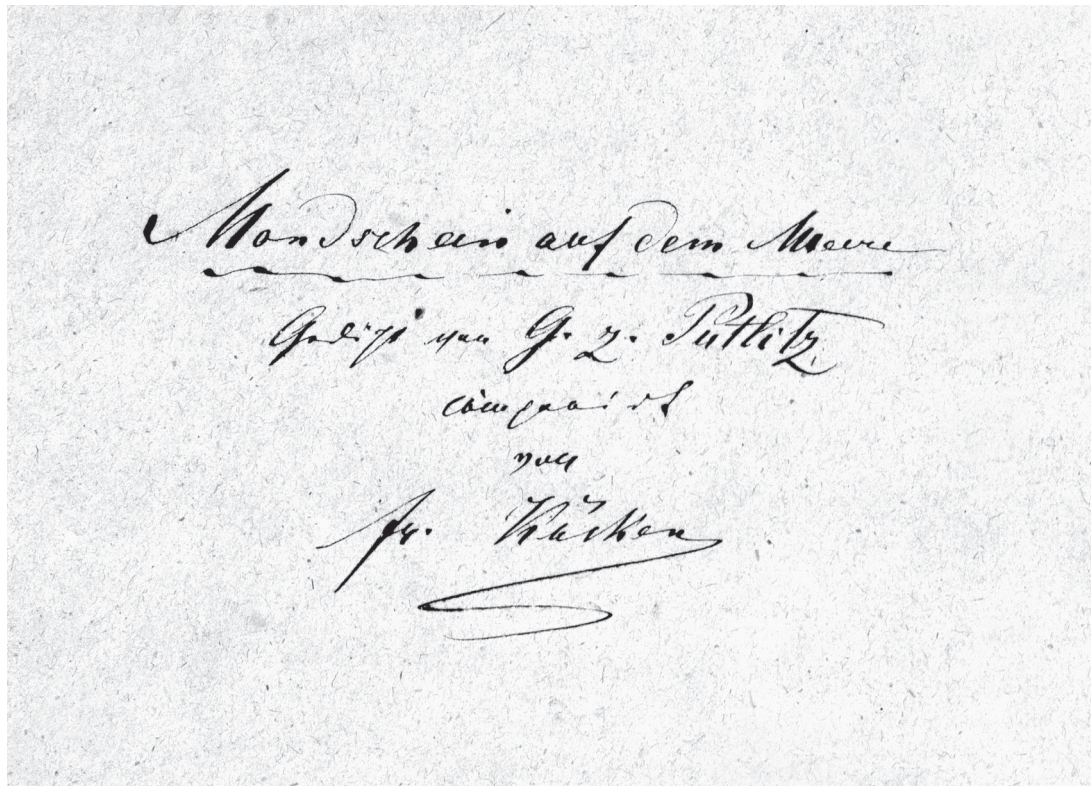 Mondschein auf dem Meere
Gedicht von G. z. Putlitz
componirt
von
Fr. Kücken